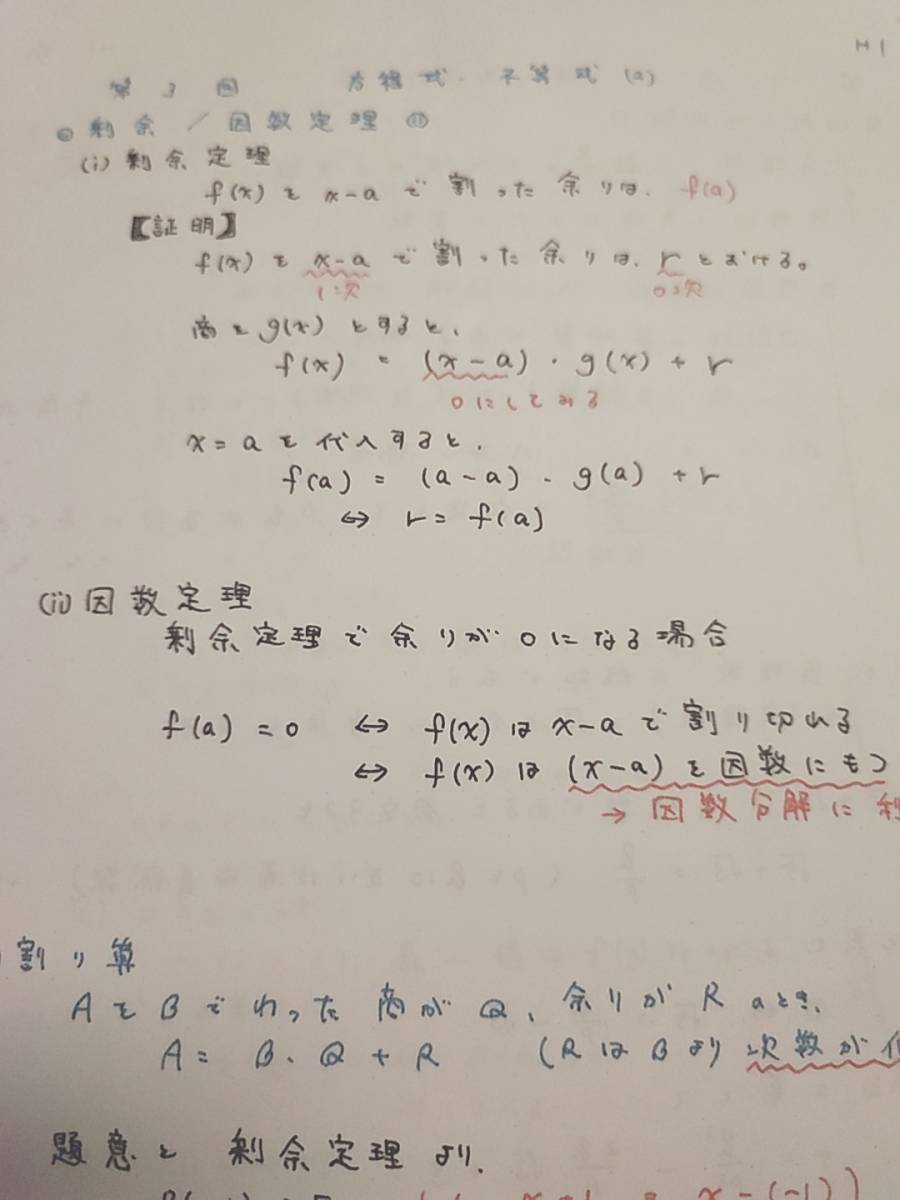 M1
第3回 方程式・不等式(2)
◎剰余/因数定理
(i) 剰余定理
f(x)を x-a で割った余りは、f(a)
【証明】
f(x)を x-a で割った余りは、rとおける。
1次 0次
商を g(x) とすると、
f(x) = (x-a)・g(x) + r
0にしてみる
x=a を代入すると、
f(a) = (a-a)・g(a) + r
⇔ r = f(a)
(ii) 因数定理
剰余定理で余りが0になる場合
f(a) = 0 ⇔ f(x)は x-a で割り切れる
⇔ f(x)は (x-a)を因数にもつ
→ 因数分解に利
割り算
AをBでわった商がQ、余りがRのとき、
A = B・Q + R (RはBより次数が低
題意と剰余定理より、